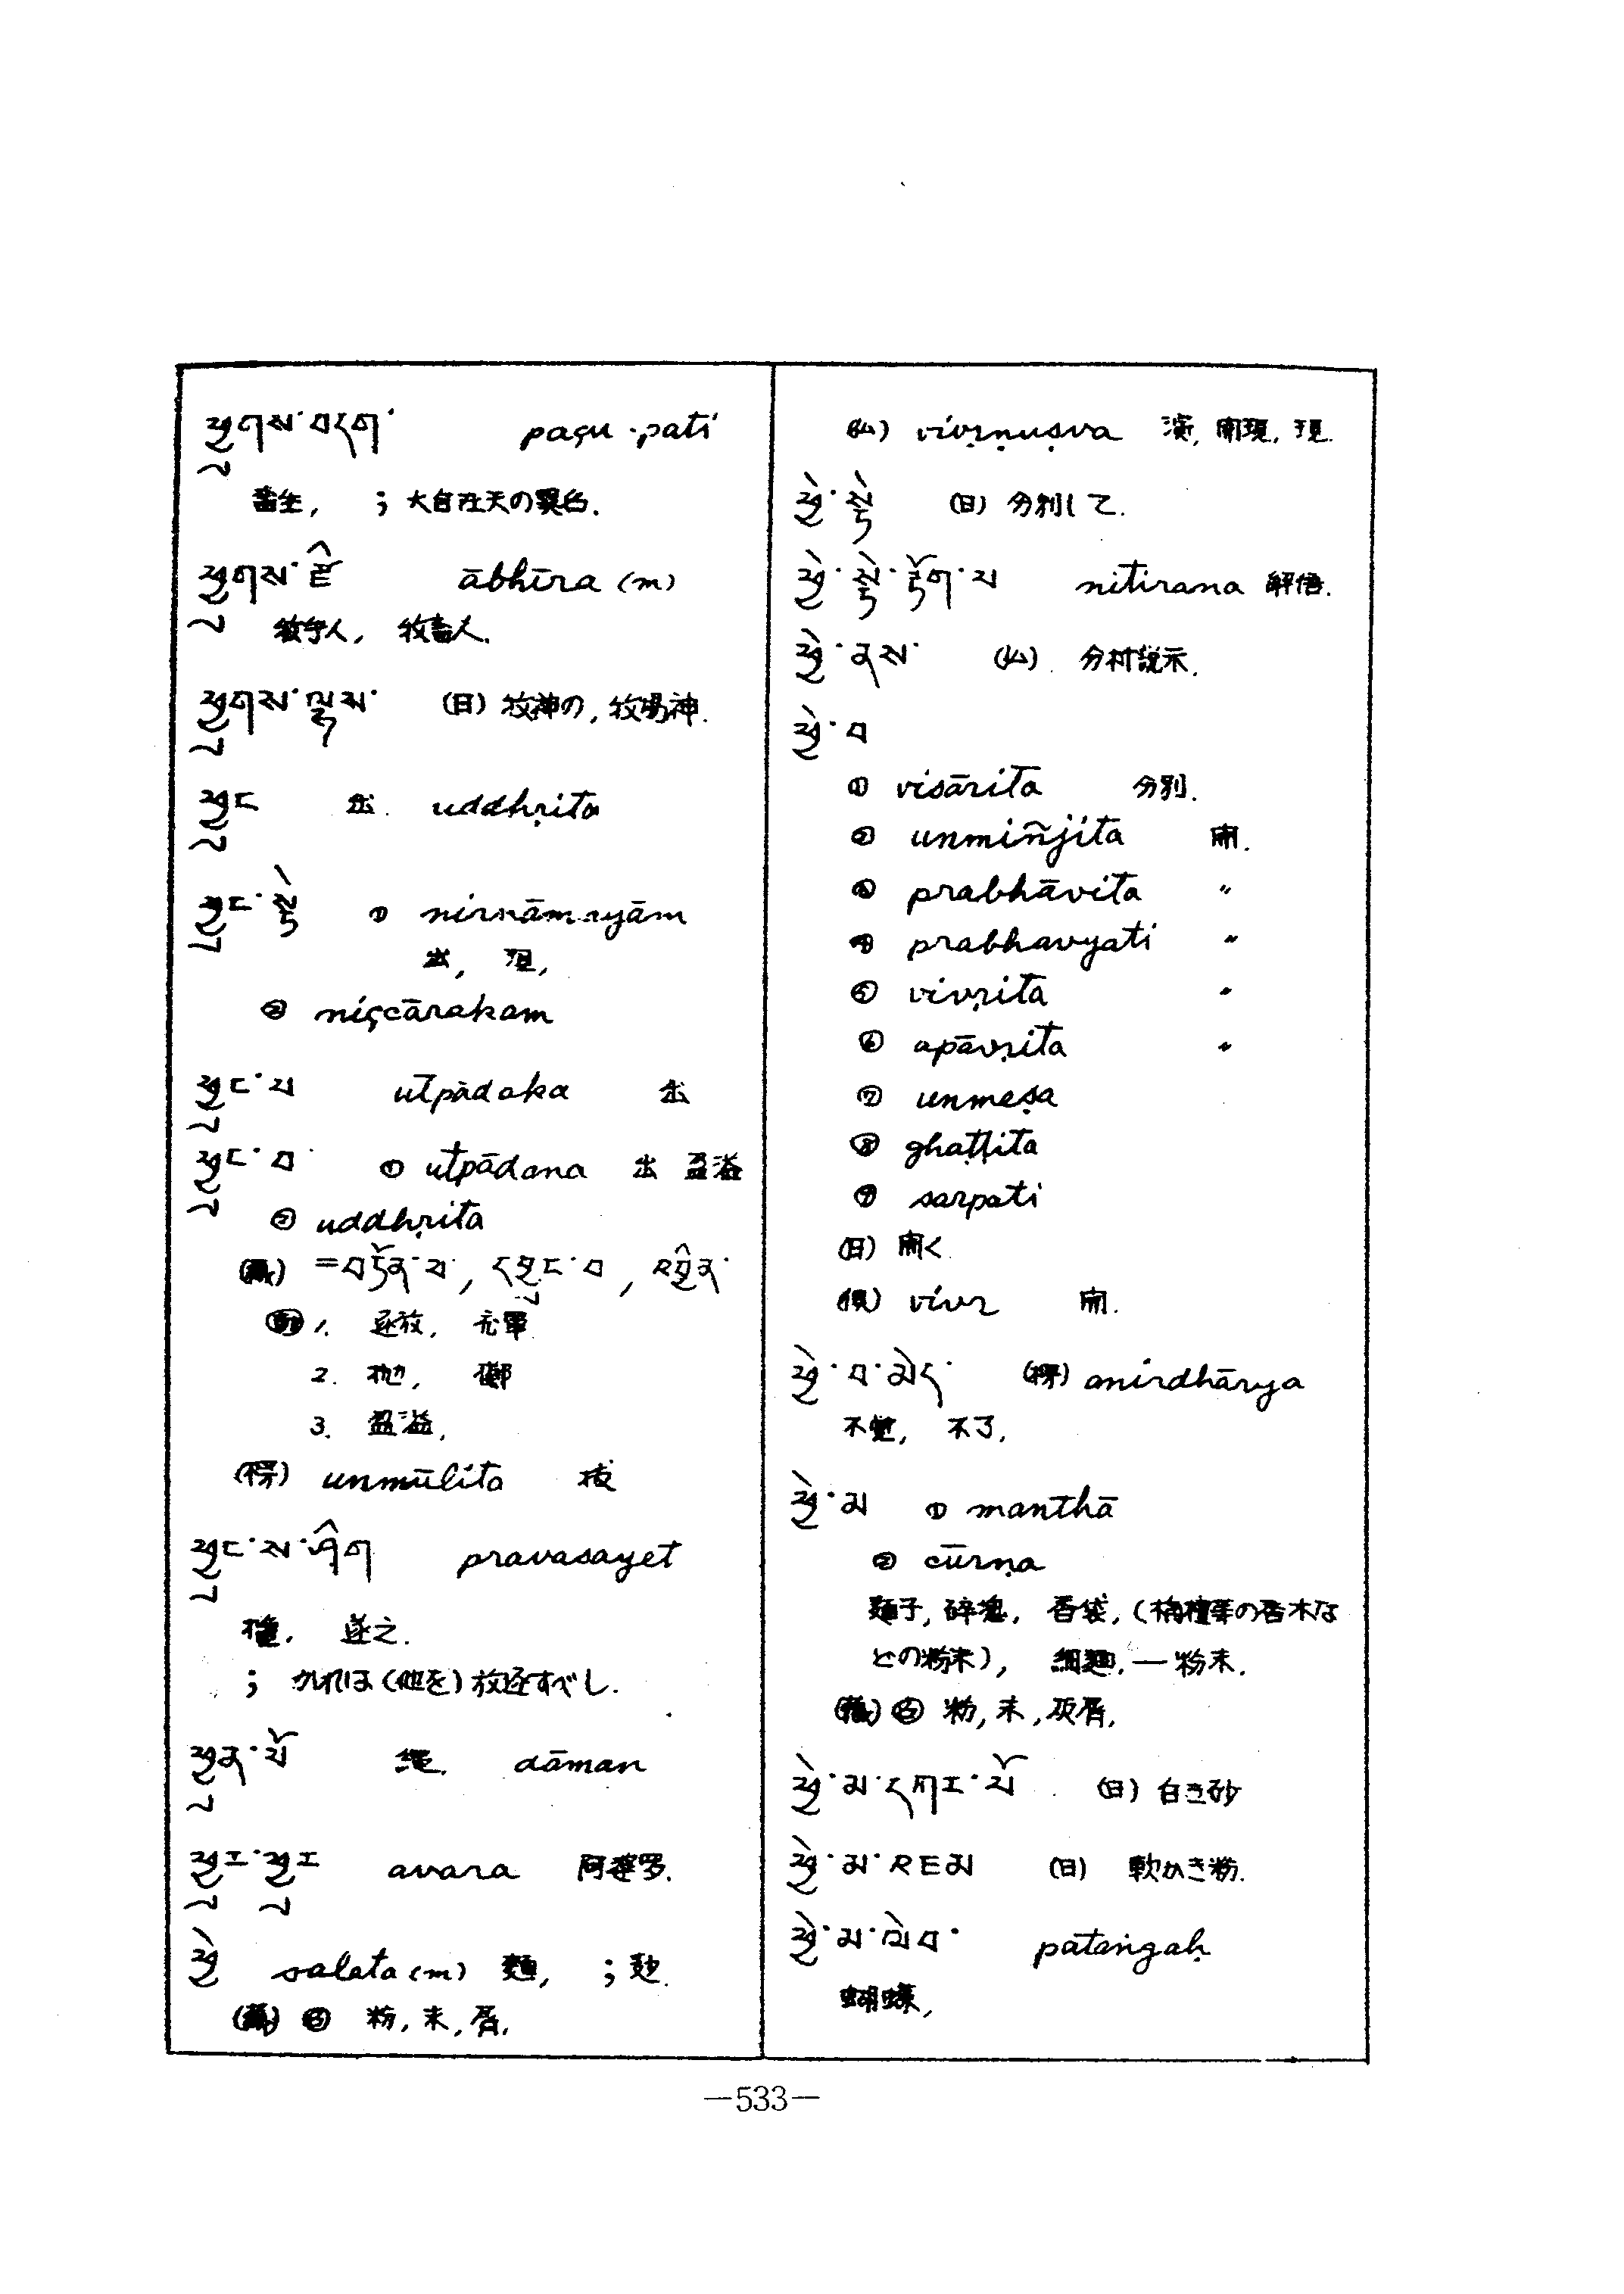 ཕྱུགས་བདག་ paçu-pati
畜生, ; 大自在天の異名.
ཕྱུགས་རྫི ābhīra (m)
牧守人, 牧畜人.
ཕྱུགས་ལྷས་ (日) 牧神の, 牧場神.
ཕྱུང 出. uddhṛita
ཕྱུང་སྟེ ① nirnāmayām
出, 現,
② niçcārakam
ཕྱུང་པ utpādaka 出
ཕྱུང་བ ① utpādana 出 盈溢
② uddhṛita
(蔵) =བཏོན་པ་, དབྱུང་བ, འབྱིན་
1. 逐放, 充軍
2. 抛, 擲
3. 盈溢,
(梵) unmūlita 抜
ཕྱུང་ས་ཤིག pravasayet
擯, 逐之.
; かれは(他を)放逐すべし.
ཕྱུན་པོ 縄. dāman
ཕྱུར་ཕྱུར avara 阿婆罗.
ཕྱེ salata (m) 麺, ; 麨.
(蔵) 粉, 末, 屑,
(仏) vivṛṇuṣva 演, 開現, 現.
ཕྱེ་སྟེ (日) 分別して.
ཕྱེ་སྟེ་རྟོག་པ nitirana 解悟.
ཕྱེ་ནས་ (仏) 分析説示.
ཕྱེ་བ
① visārita 分別.
② unmiñjita 開.
③ prabhāvita 〃
④ prabhavyati 〃
⑤ vivṛita 〃
⑥ apāvṛita 〃
⑦ unmeṣa
⑧ ghaṭṭita
⑨ sarpati
(日) 開く
(倶) vivr 開.
ཕྱེ་བ་མེད་ (梵) anirdhārya
不覚, 不了,
ཕྱེ་མ ① manthā
② cūrṇa
麺子, 砕塊, 香袋, (栴檀等の香木な
どの粉末), 細麺, — 粉末.
(蔵) 粉, 末, 灰屑,
ཕྱེ་མ་དཀར་པོ (日) 白き砂
ཕྱེ་མ་འཇམ (日) 軟かき粉.
ཕྱེ་མ་ལེབ་ pataṅgaḥ
蝴蝶,
—533—